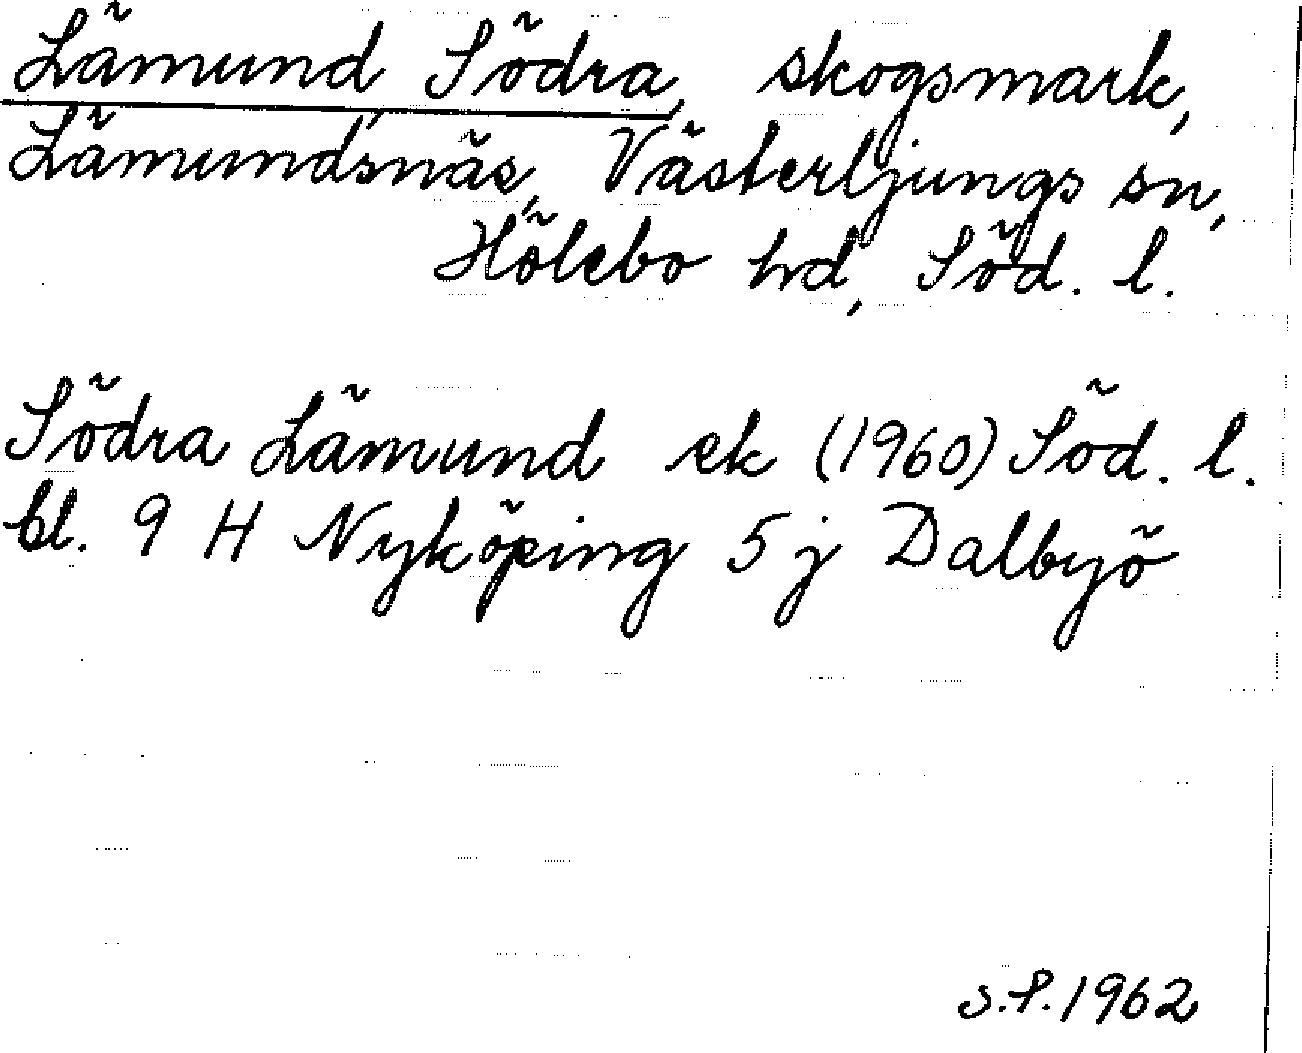 Lämund, Södra, skogsmark,
Lämundsnäs, Västerljungs sn,
Hölebo hd, Söd. l.
Södra Lämund ek (1960) Söd. l.
bl. 9 H Nyköping 5 j Dalbyö
S.P. 1962